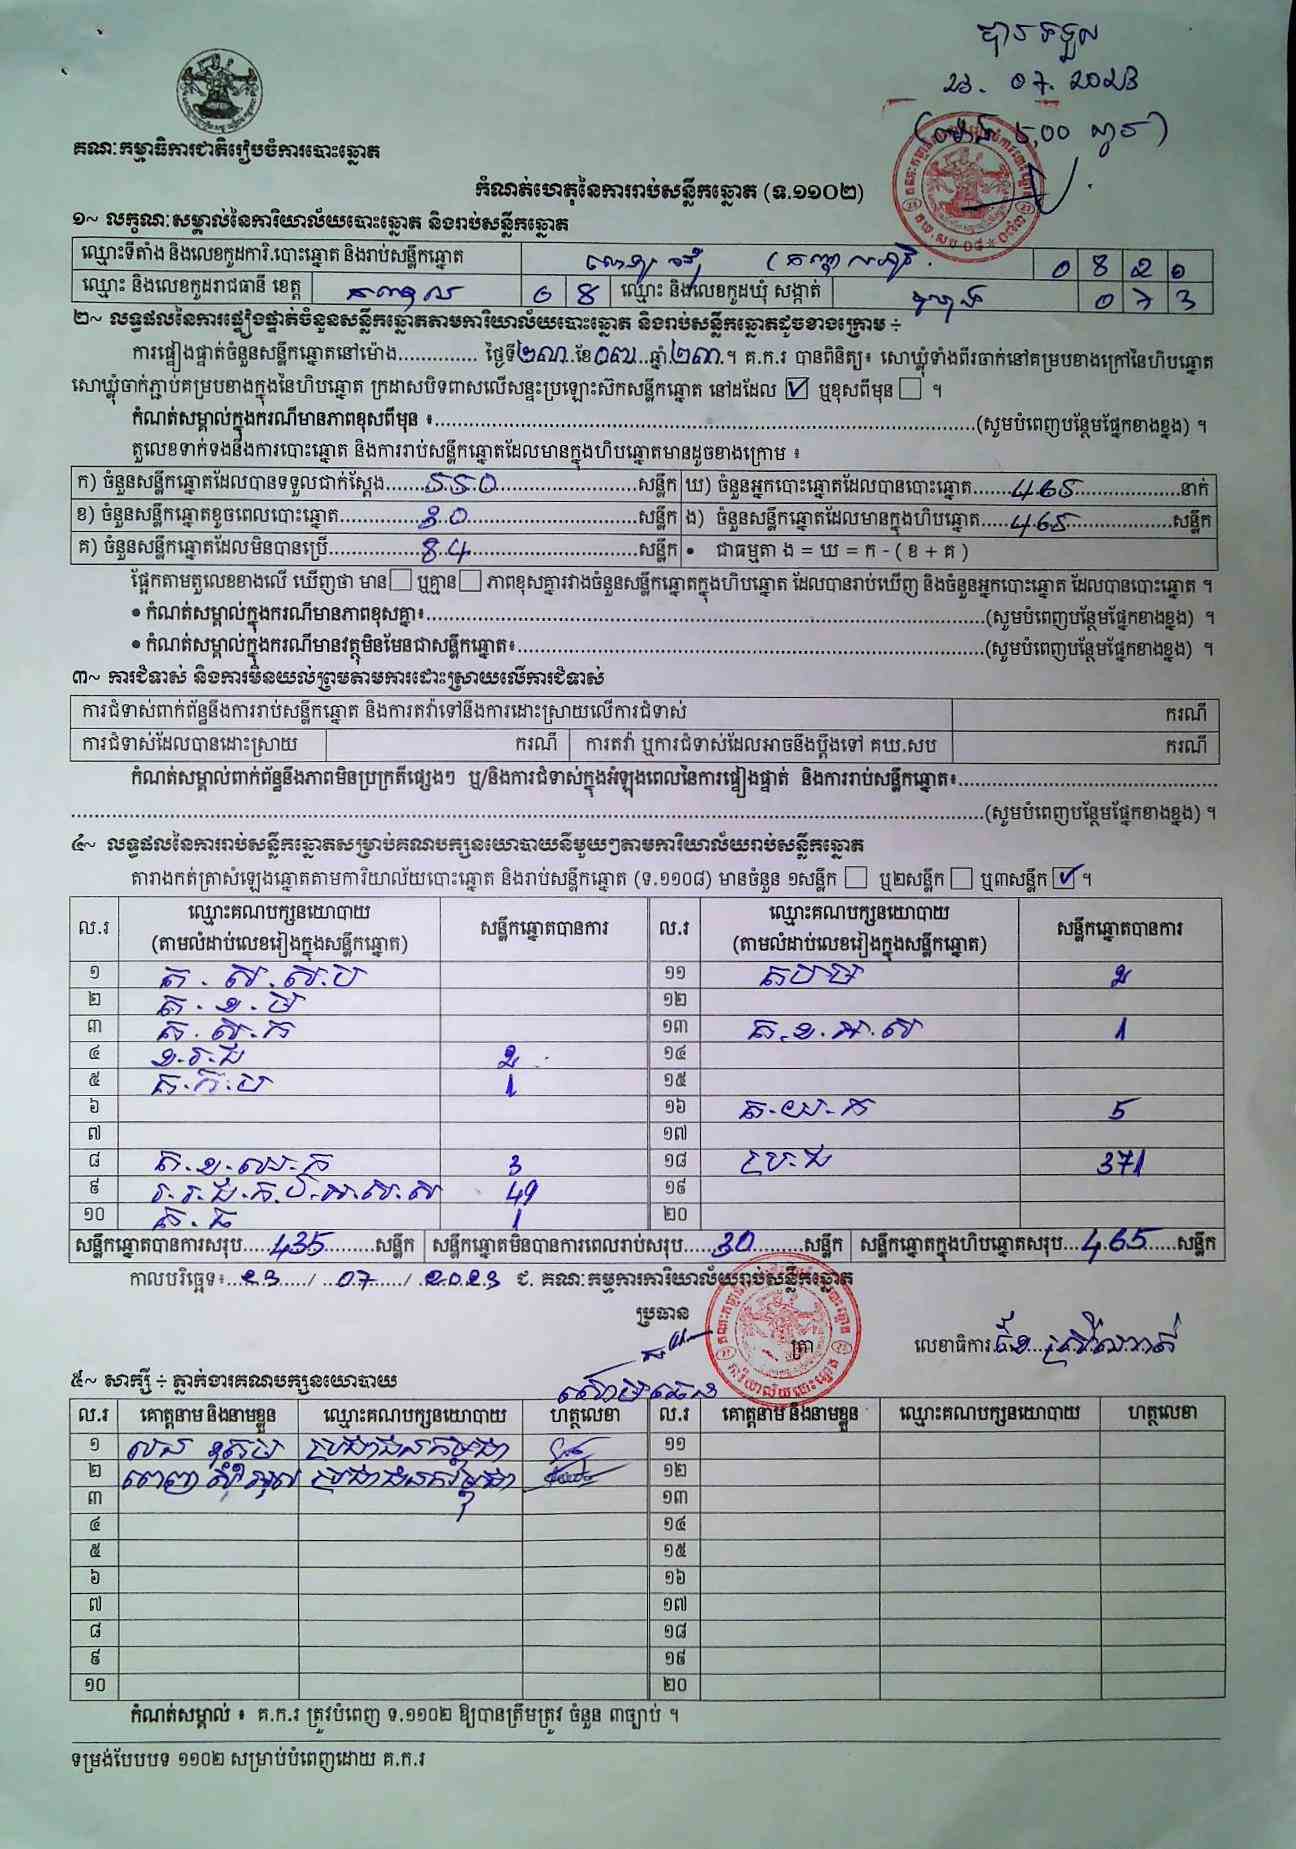 បានទទួល
23. 07. 2023
គណៈកម្មាធិការជាតិរៀបចំការបោះឆ្នោត
កំណត់ហេតុនៃការរាប់សន្លឹកឆ្នោត (ទ.១១០២)
១~ លក្ខណៈសម្គាល់នៃការិយាល័យបោះឆ្នោត និងរាប់សន្លឹកឆ្នោត
ឈ្មោះទីតាំង និងលេខកូដការិ.បោះឆ្នោត និងរាប់សន្លឹកឆ្នោត 0 8 2 0
ឈ្មោះ និងលេខកូដរាជធានី ខេត្ត កណ្តាល 0 8 ឈ្មោះ និងលេខកូដឃុំ សង្កាត់ 0 7 3
២~ លទ្ធផលនៃការផ្ទៀងផ្ទាត់ចំនួនសន្លឹកឆ្នោតតាមការិយាល័យបោះឆ្នោត និងរាប់សន្លឹកឆ្នោតដូចខាងក្រោម ÷
ការផ្ទៀងផ្ទាត់ចំនួនសន្លឹកឆ្នោតនៅម៉ោង.............. ថ្ងៃទី២៣..ខែ០៧..ឆ្នាំ.២៣.។ គ.ក.រ បានពិនិត្យ៖ សោឃ្លុំទាំងពីរចាក់នៅគម្របខាងក្រៅនៃហិបឆ្នោត
សោឃ្លុំចាក់ភ្ជាប់គម្របខាងក្នុងនៃហិបឆ្នោត ក្រដាសបិទពាសលើសន្ទះប្រឡោះស៊កសន្លឹកឆ្នោត នៅដដែល ☑ ឬខុសពីមុន ☐ ។
កំណត់សម្គាល់ក្នុងករណីមានភាពខុសពីមុន ៖..............................(សូមបំពេញបន្ថែមផ្នែកខាងខ្នង) ។
តួលេខទាក់ទងនឹងការបោះឆ្នោត និងការរាប់សន្លឹកឆ្នោតដែលមានក្នុងហិបឆ្នោតមានដូចខាងក្រោម ៖
ក) ចំនួនសន្លឹកឆ្នោតដែលបានទទួលជាក់ស្តែង.......550..............សន្លឹក ឃ) ចំនួនអ្នកបោះឆ្នោតដែលបានបោះឆ្នោត.......465..............នាក់
ខ) ចំនួនសន្លឹកឆ្នោតខូចពេលបោះឆ្នោត..............សន្លឹក ង) ចំនួនសន្លឹកឆ្នោតដែលមានក្នុងហិបឆ្នោត.....465..............សន្លឹក
គ) ចំនួនសន្លឹកឆ្នោតដែលមិនបានប្រើ..............84..............សន្លឹក • ជាធម្មតា ង = ឃ = ក - ( ខ + គ )
ផ្អែកតាមតួលេខខាងលើ ឃើញថា មាន☐ ឬគ្មាន☐ ភាពខុសគ្នារវាងចំនួនសន្លឹកឆ្នោតក្នុងហិបឆ្នោត ដែលបានរាប់ឃើញ និងចំនួនអ្នកបោះឆ្នោត ដែលបានបោះឆ្នោត ។
• កំណត់សម្គាល់ក្នុងករណីមានភាពខុសគ្នា៖..............................(សូមបំពេញបន្ថែមផ្នែកខាងខ្នង) ។
• កំណត់សម្គាល់ក្នុងករណីមានវត្ថុមិនមែនជាសន្លឹកឆ្នោត៖..............................(សូមបំពេញបន្ថែមផ្នែកខាងខ្នង) ។
៣~ ការជំទាស់ និងការមិនយល់ព្រមតាមការដោះស្រាយលើការជំទាស់
ការជំទាស់ពាក់ព័ន្ធនឹងការរាប់សន្លឹកឆ្នោត និងការតវ៉ាទៅនឹងការដោះស្រាយលើការជំទាស់ ករណី
ការជំទាស់ដែលបានដោះស្រាយ ករណី ការតវ៉ា ឬការជំទាស់ដែលអាចនឹងប្តឹងទៅ គឃ.សប ករណី
កំណត់សម្គាល់ពាក់ព័ន្ធនឹងភាពមិនប្រក្រតីផ្សេងៗ ឬ/និងការជំទាស់ក្នុងអំឡុងពេលនៃការផ្ទៀងផ្ទាត់ និងការរាប់សន្លឹកឆ្នោត៖..............................
..............................(សូមបំពេញបន្ថែមផ្នែកខាងខ្នង) ។
៤~ លទ្ធផលនៃការរាប់សន្លឹកឆ្នោតសម្រាប់គណបក្សនយោបាយនីមួយៗតាមការិយាល័យរាប់សន្លឹកឆ្នោត
តារាងកត់ត្រាសំឡេងឆ្នោតតាមការិយាល័យបោះឆ្នោត និងរាប់សន្លឹកឆ្នោត (ទ.១១០៨) មានចំនួន ១សន្លឹក ☐ ឬ២សន្លឹក ☐ ឬ៣សន្លឹក ☑ ។
ល.រ ឈ្មោះគណបក្សនយោបាយ (តាមលំដាប់លេខរៀងក្នុងសន្លឹកឆ្នោត) សន្លឹកឆ្នោតបានការ ល.រ ឈ្មោះគណបក្សនយោបាយ (តាមលំដាប់លេខរៀងក្នុងសន្លឹកឆ្នោត) សន្លឹកឆ្នោតបានការ
១ គ.ស.ស.ប ១១ គបម 2
២ គ.ខ.ម ១២
៣ គ.ស.ក ១៣ គ.ខ.អ.ស 1
៤ ខ.រ.ជ 2 ១៤
៥ គ.ក.ប 1 ១៥
៦ ១៦ គ.យ.ក 5
៧ ១៧
៨ គ.ខ.ឈ.ក 3 ១៨ ប្រ.ជ 371
៩ 49 ១៩
១០ គ.ធ 1 ២០
សន្លឹកឆ្នោតបានការសរុប.....435.........សន្លឹក សន្លឹកឆ្នោតមិនបានការពេលរាប់សរុប......30.........សន្លឹក សន្លឹកឆ្នោតក្នុងហិបឆ្នោតសរុប...465......សន្លឹក
កាលបរិច្ឆេទ៖...23...../ ..07..../ .2023 ជ. គណៈកម្មការការិយាល័យរាប់សន្លឹកឆ្នោត
ប្រធាន
ត្រា
លេខាធិការ
៥~ សាក្សី ÷ ភ្នាក់ងារគណបក្សនយោបាយ
ល.រ គោត្តនាម និងនាមខ្លួន ឈ្មោះគណបក្សនយោបាយ ហត្ថលេខា ល.រ គោត្តនាម និងនាមខ្លួន ឈ្មោះគណបក្សនយោបាយ ហត្ថលេខា
១ ប្រជាជនកម្ពុជា ១១
២ ប្រជាជនកម្ពុជា ១២
៣ ១៣
៤ ១៤
៥ ១៥
៦ ១៦
៧ ១៧
៨ ១៨
៩ ១៩
១០ ២០
កំណត់សម្គាល់ ៖ គ.ក.រ ត្រូវបំពេញ ទ.១១០២ ឱ្យបានត្រឹមត្រូវ ចំនួន ៣ច្បាប់ ។
ទម្រង់បែបបទ ១១០២ សម្រាប់បំពេញដោយ គ.ក.រ